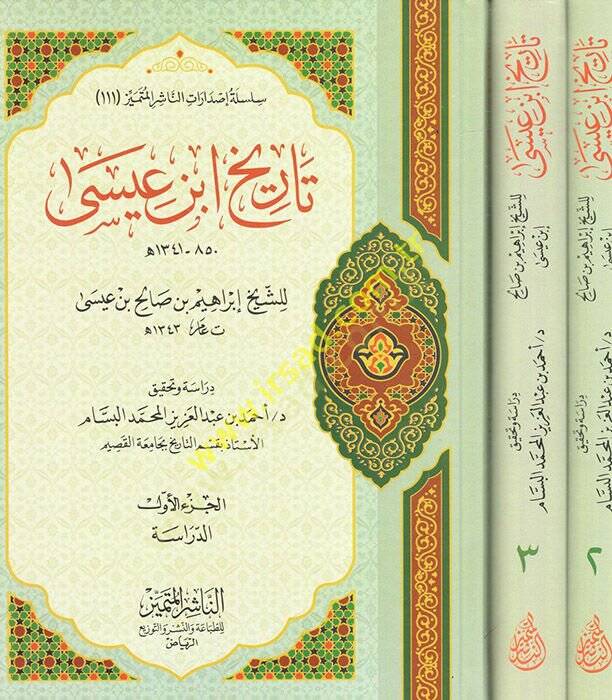 سلسلة إصدارات الناشر المتميز (١١١)
تاريخ ابن عيسى
٨٥٠ - ١٣٤١هـ
للشيخ إبراهيم بن صالح بن عيسى
ت عام ١٣٤٣هـ
دراسة وتحقيق
د/ أحمد بن عبد العزيز المحمد البسام
الأستاذ بقسم التاريخ بجامعة القصيم
الجزء الأول
الدراسة
الناشر المتميز
للطباعة والنشر والتوزيع
الرياض
تاريخ ابن عيسى
للشيخ إبراهيم بن صالح
ابن عيسى
دراسة وتحقيق
د/ أحمد بن عبد العزيز المحمد البسام
٣
تاريخ ابن عيسى
للشيخ إبراهيم بن صالح
ابن عيسى
دراسة وتحقيق
د/ أحمد بن عبد العزيز المحمد البسام
٢